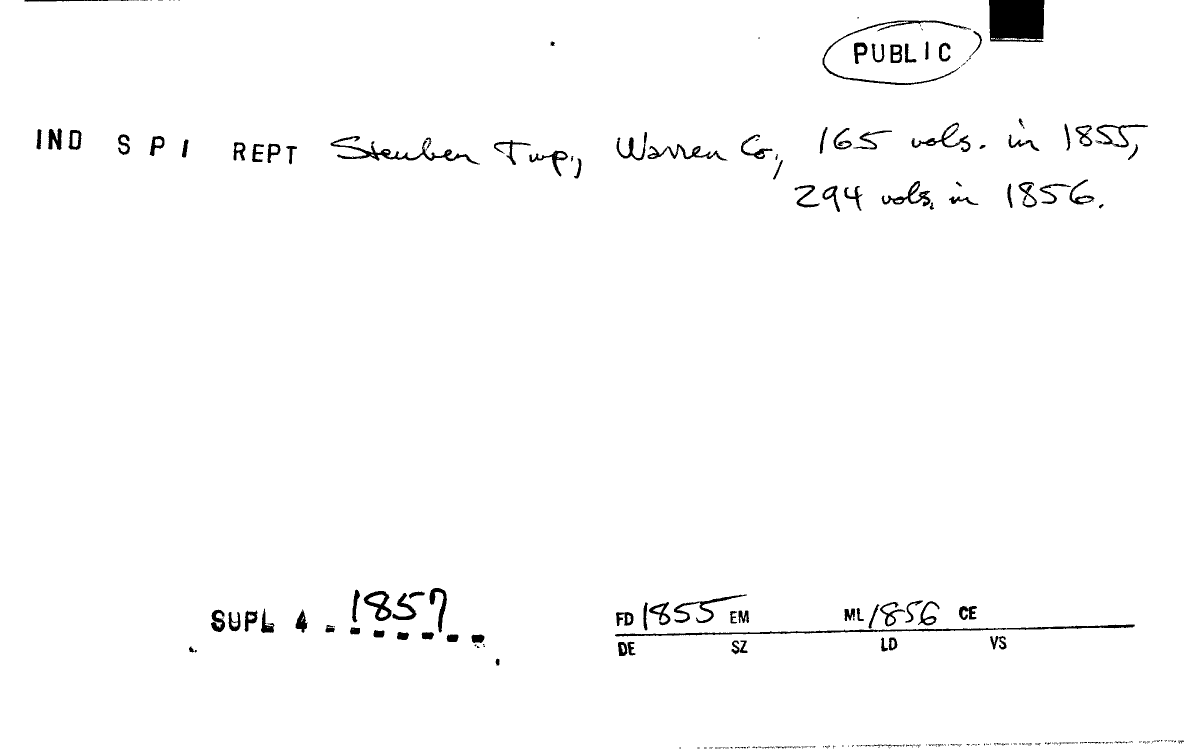 PUBLIC
IND S P I REPT Steuben Twp., Warren Co., 165 vols. in 1855,
294 vols. in 1856.
SUPL 4 - 1857
FD 1855 EM ML 1856 CE
DE SZ LD VS